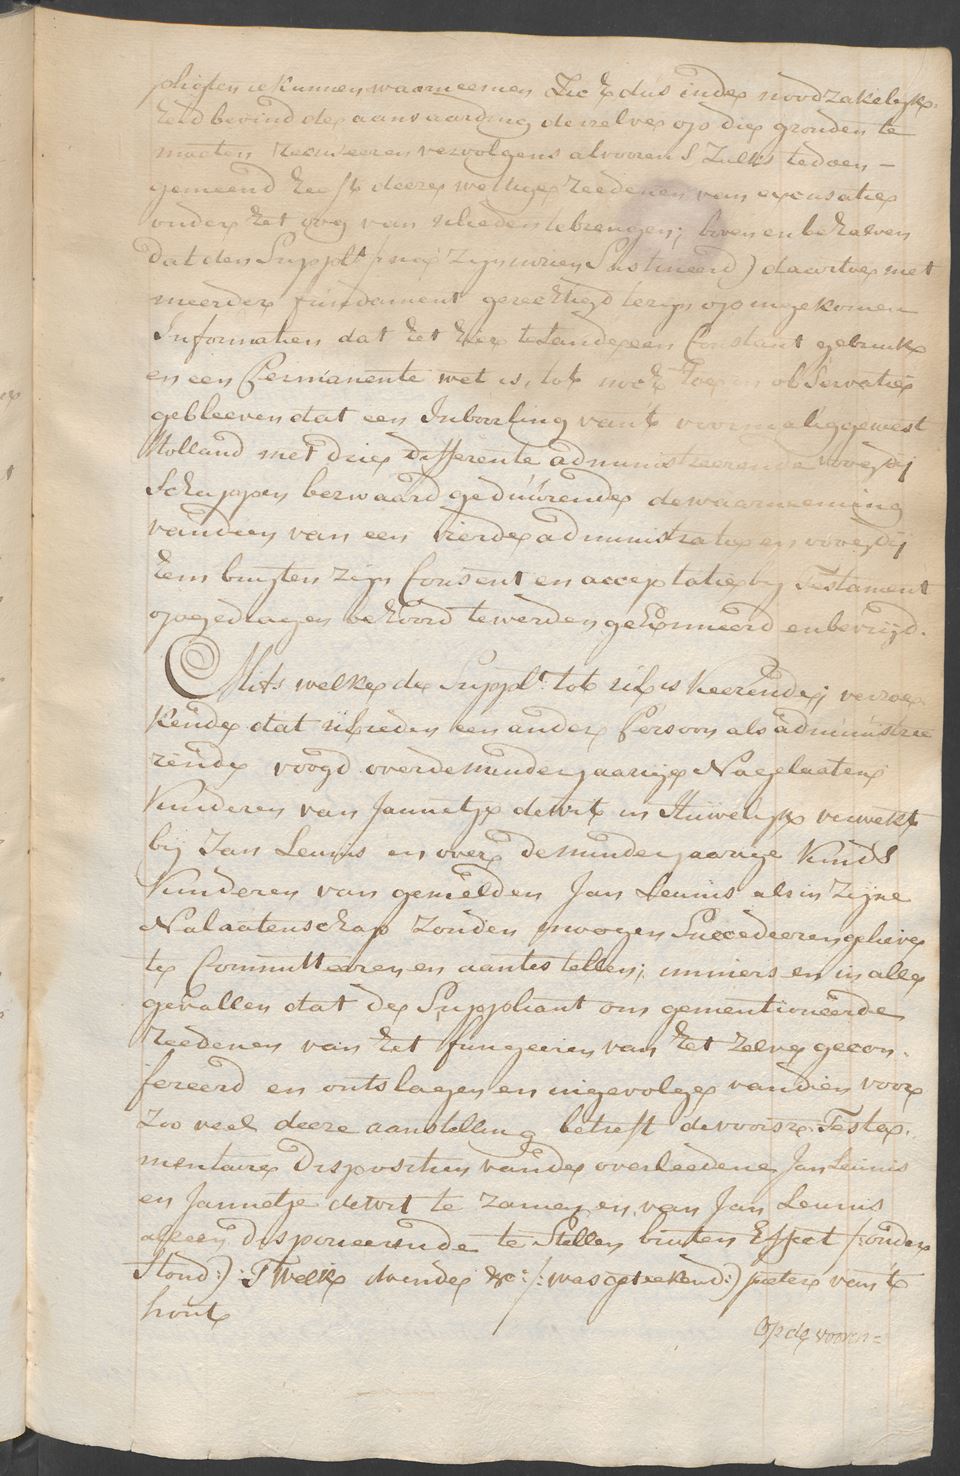 pligten te kunnen waarneemen Zich dus inde noodzakelijk-
heid bevind de aanvaarding derzelve op die gronden te
moeten recuseeren vervolgens alvoorens Zulks te doen –
gemeend heeft deeze wettige reedenen van excusatie
onder het oog van ulieden te brengen; boven en behalven
dat den Suppl.t /: mijn Zijns / Sustineerd) daartoe met
meerder fundament gerechtigd te zijn op ingekomen
Informatien dat het hier te Lande een Constant gebruik
en een Permanente wet is, tot noch toe in observatie
gebleeven dat een Inboorling van 't voormalig gewest
Holland met drie differente administreerende voogdij
Schappen bezwaard geduurende de waarneeming
van dien van een vierde administratie en voogdij
hem buyten zijn Consent en acceptatie bij Testament
opgedragen behoord te werden geExcuseerd en bevrijd.
Mits welke de Suppl.t tot ul: is keerende; verzoe
kende dat ulieden een ander Persoon als administree
rende voogd over de minderjaarige Nagelaaten
Kinderen van Jannetje de Wit in Huwelijk verwekt
bij Jan Leunis en over de minderjaarige Kinds
Kinderen van gemelden Jan Leunis als in Zijne
Nalaatenschap Zouden moogen Succedeeren gelieve
te Committeeren en aantestellen; immers en in alle
gevallen dat de Suppliant om gementioneerde
Reedenen van het fungeeren van het Zelve geex-
cuseerd en ontslagen en ingevolge van dien voor
Zoo veel deeze aanstelling betreft de voorsz: Testa-
mentaire Dispositien van de overleedene Jan Leunis
en Jannetje de Wit te zamen en van Jan Leunis
alleen disponeerende te Stellen buiten Effect /: onder
Stond:) 'T Welk doende &c: /: was geteekend:) pieter van 't
hout
Op de voorn=